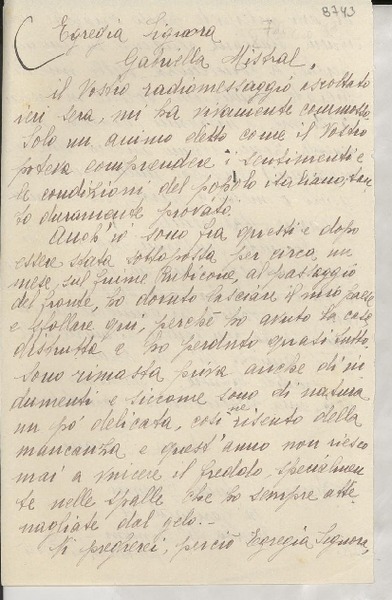 8743
7
Egregia Signora
Gabriella Mistral,
il Vostro radiomessaggio ascoltato
ieri sera, mi ha vivamente commossa.
Solo un animo eletto come il Vostro
poteva comprendere i sentimenti e
le condizioni del popolo italiano, tan
to duramente provato.
Anch'io sono fra questi e dopo
essere stata sottoposta per circa un
mese, sul fiume Rubicone, al passaggio
del fronte, ho dovuto lasciare il mio paese
e sfollare qui, perchè ho avuto la casa
distrutta e ho perduto quasi tutto.
Sono rimasta priva anche di in
dumenti e siccome sono di natura
un po' delicata, così ne risento della
mancanza e quest'anno non riesco
mai a vincere il freddo, specialmen
te nelle spalle che ho sempre atta
nagliate dal gelo.-
Vi pregherei, perciò Egregia Signora,